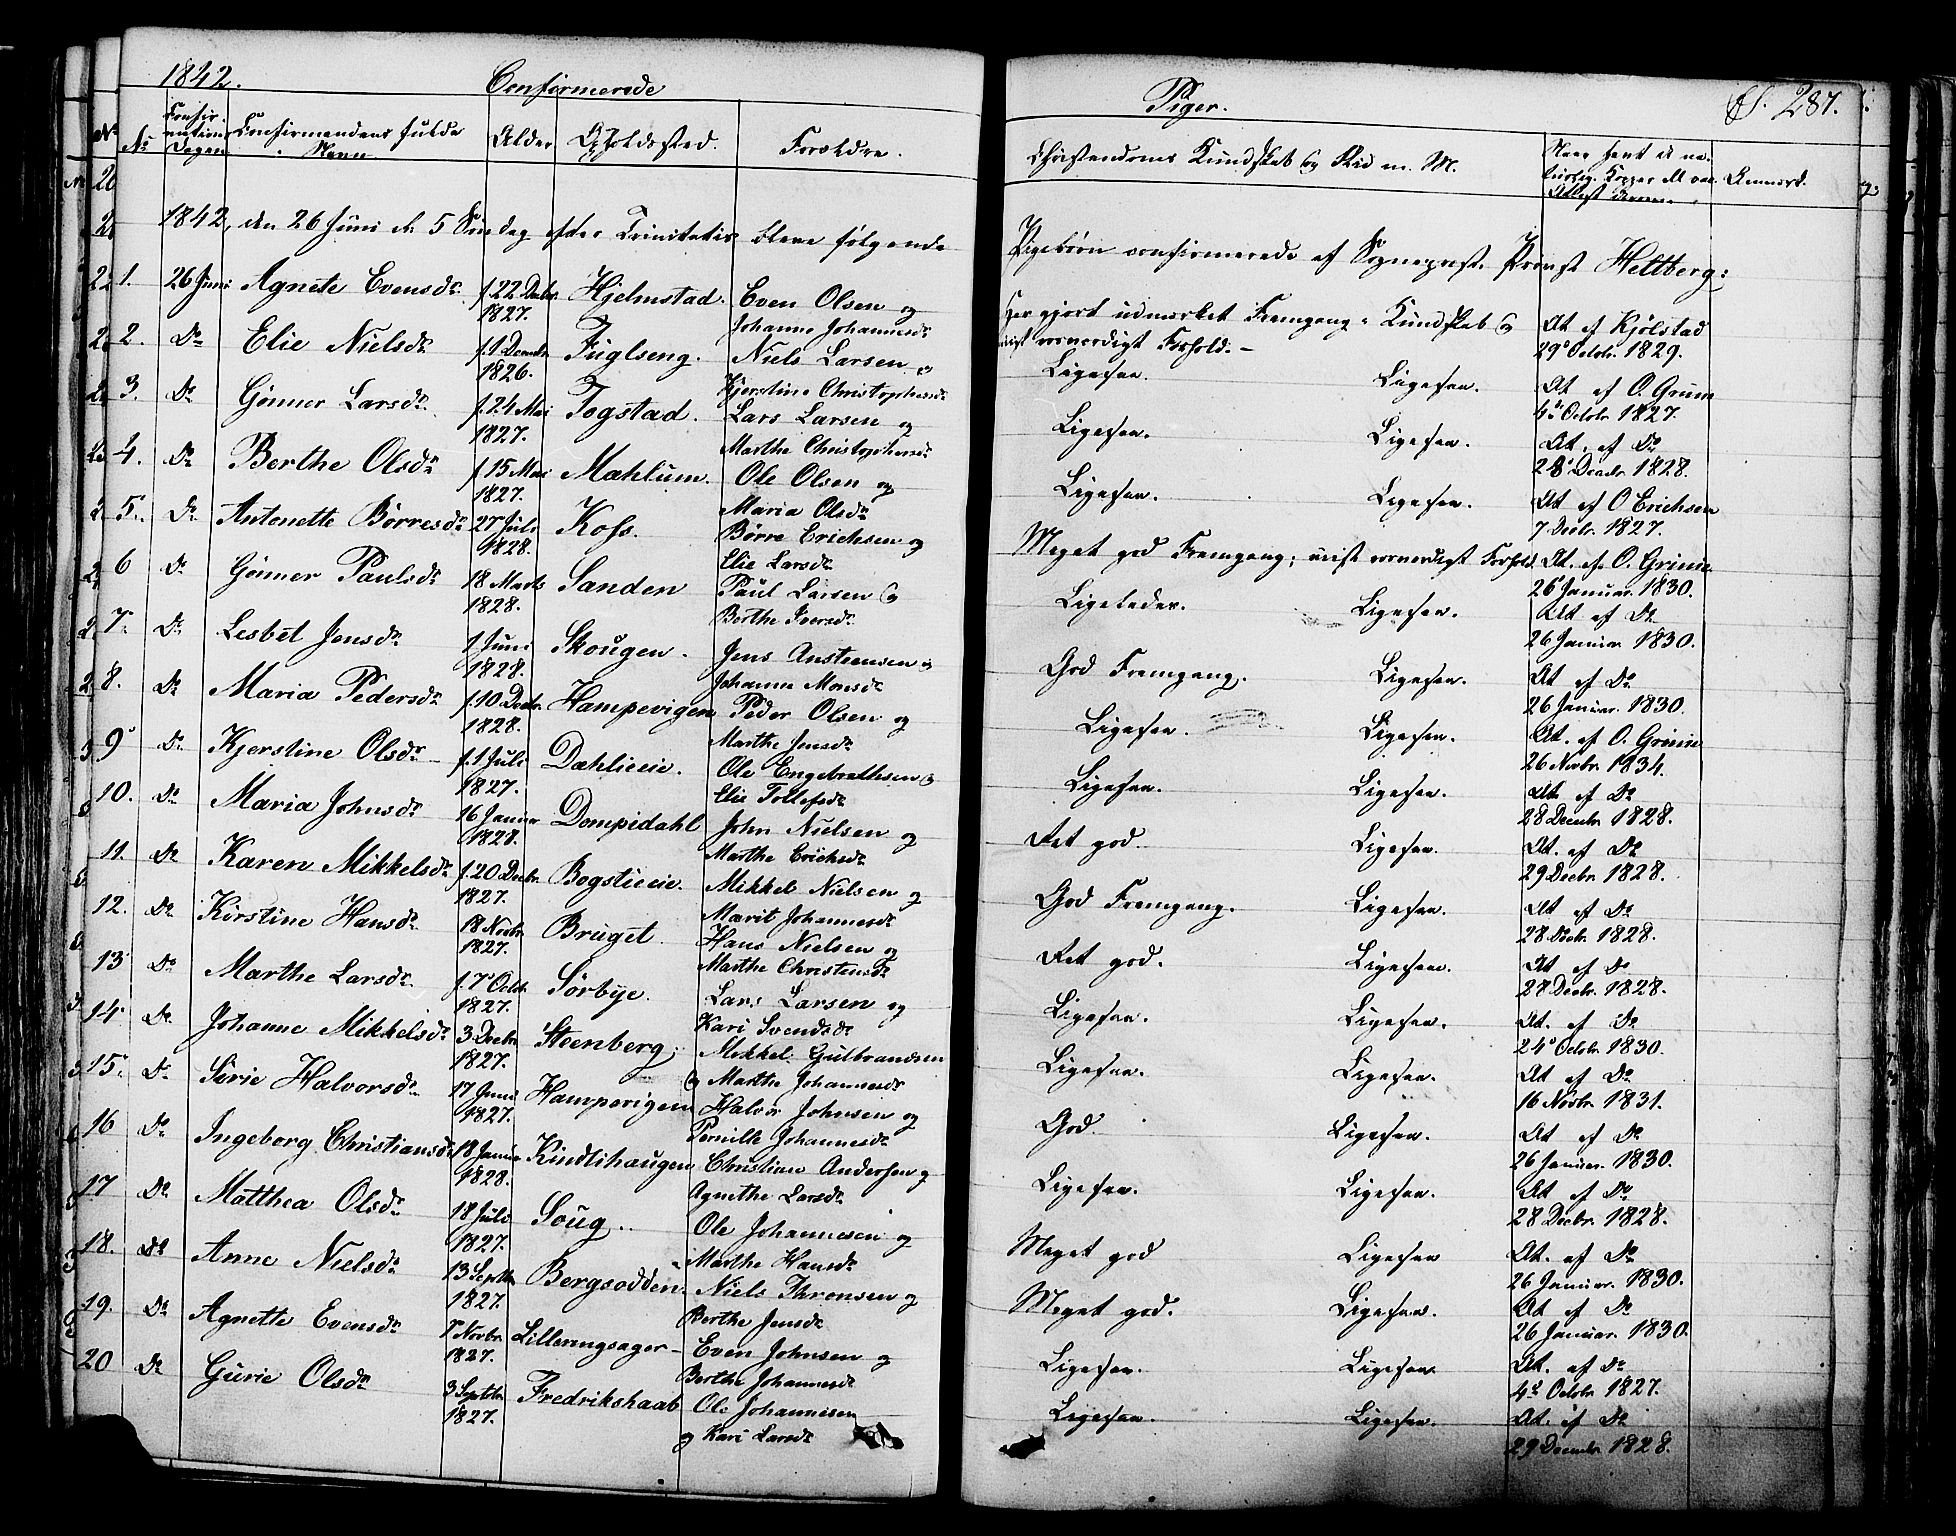 1842. Confirmerede Piger. S. 287.
No Confirmations Dagen Confirmandens fulde Navn Alder Opholdssted. Forældre. Christendoms Kundskab og Flid m. M. Anmærk.
1842, den 26 Juni d. 5 Søndag efter Trinitatis bleve følgende Pigebørn confirmerede af Sognepræst, Provst Heltberg:
1. 26 Juni Agnete Evensdr. f. 22 Decbr. Hjelmstad. Even Olsen og Har gjort udmærket Fremgang i Kundskab og At. af Kjølstad
1827. Johanne Johannesdr. viist rosværdigt Forhold. – 29 Octobr. 1829.
2. Do Elie Nielsdr. f. 1 Decembr. Fuglseng. Niels Larsen og Ligesaa. Ligesaa. At. af O. Grimm
1826. Kjerstine Christophersdr. 4de Octobr. 1827.
3. Do Gønner Larsdr. f. 24 Mai Togstad. Lars Larsen og Ligesaa. Ligesaa. At. af Do
1827. Marthe Christophersdr. 28 Decembr. 1828.
4. Do Berthe Olsdr. f. 15 Mai Mæhlum. Ole Olsen og Ligesaa. Ligesaa. At. af O Erichsen
1827. Maria Olsdr. 7 Decbr. 1827.
5. Do Antonette Børresdr. 27 Juli Koss. Børre Erichsen og Meget god Fremgang; viist rosværdigt Forhold. At. af O. Grimm
1828. Elie Larsdr. 26 Januar. 1830.
6 Do Gønner Paulsdr. 18 Marts Sanden Paul Larsen og Ligeledes. Ligesaa. At. af Do
1828. Berthe Iversdr. 26 Januar. 1830.
7. Do Lesbet Jensdr. 1 Juni Skougen. Jens Ansteensen og God Fremgang. Ligesaa. At af Do
1828. Johanne Monsdr. 26 Januar. 1830.
8. Do Maria Pedersdr. f. 10 Decbr. Hampevigen Peder Olsen og Ligesaa. Ligesaa. At. af O. Grimm
1828. Marthe Jensdr. 26 Novbr. 1834.
9 Do Kjerstine Olsdr. f. 1 Juli Dæhlieeie. Ole Engebrethsen og Ligesaa. Ligesaa. At. af Do
1827. Elie Tollefsdr. 28 Decembr. 1828.
10. Do Maria Johnsdr. 16 Januar Dompidahl John Nielsen og Ret god. Ligesaa. At. af Do
1828. Marthe Erichsdr. 29 Decbr. 1828.
11. Do Karen Mikkelsdr. f. 20 Decbr. Bogstieeie. Mikkel Nielsen og God Fremgang. Ligesaa. At af Do
1827. Marit Johannesdr. 28 Decbr. 1828.
12. Do Kirstine Hansdr. 18 Novbr. Bruget. Hans Nielsen og Ret god. Ligesaa. At af Do
1827. Marthe Christensdr. 28 Decbr. 1828.
13 Do Marthe Larsdr. f. 7 Octbr. Sørbye. Lars Larsen og Ligesaa. Ligesaa. At. af Do
1827. Kari Svendsdr. 24 Octobr. 1830.
14 Do Johanne Mikkelsdr. 3 Decbr. Steenberg. Mikkel Gulbrandsen Ligesaa. Ligesaa. At af Do
1827. og Marthe Johannesdr. 16 Novbr. 1831.
15. Do Sørie Halvorsdr. 17 Juni Hampevigen Halvor Johnsen og God. Ligesaa. At af Do
1827. Pernille Johannesdr. 26 Januar. 1830.
16 Do Ingeborg Christiansdr. 18 Januar Kindlihaugen Christian Andersen og Ligesaa. Ligesaa. At af Do
1828. Agnethe Larsdr. 28 Decbr. 1828.
17 Do Matthea Olsdr. 18 Juli Soug. Ole Johannesen og Meget god Ligesaa At. af Do
1827. Marthe Hansdr. 26 Januar. 1830.
18. Do Anne Nielsdr. 13 Septbr. Bergsodden. Niels Thronsen og Meget god. Ligesaa. At af Do
1827. Berthe Jensdr. 26 Januar. 1830.
19. Do Agnette Evensdr. Novbr. Lilleringsager – Even Johnsen og Ligesaa. Ligesaa. At. af Do
1827. Berthe Johannesdr. 4de Octobr. 1827.
20 Do Gurie Olsdr. 3 Septbr. Fredrikshaab Ole Johannesen Ligesaa. Ligesaa. At. af Do
1827. og Kari Larsdr. 29 Decembr. 1828.